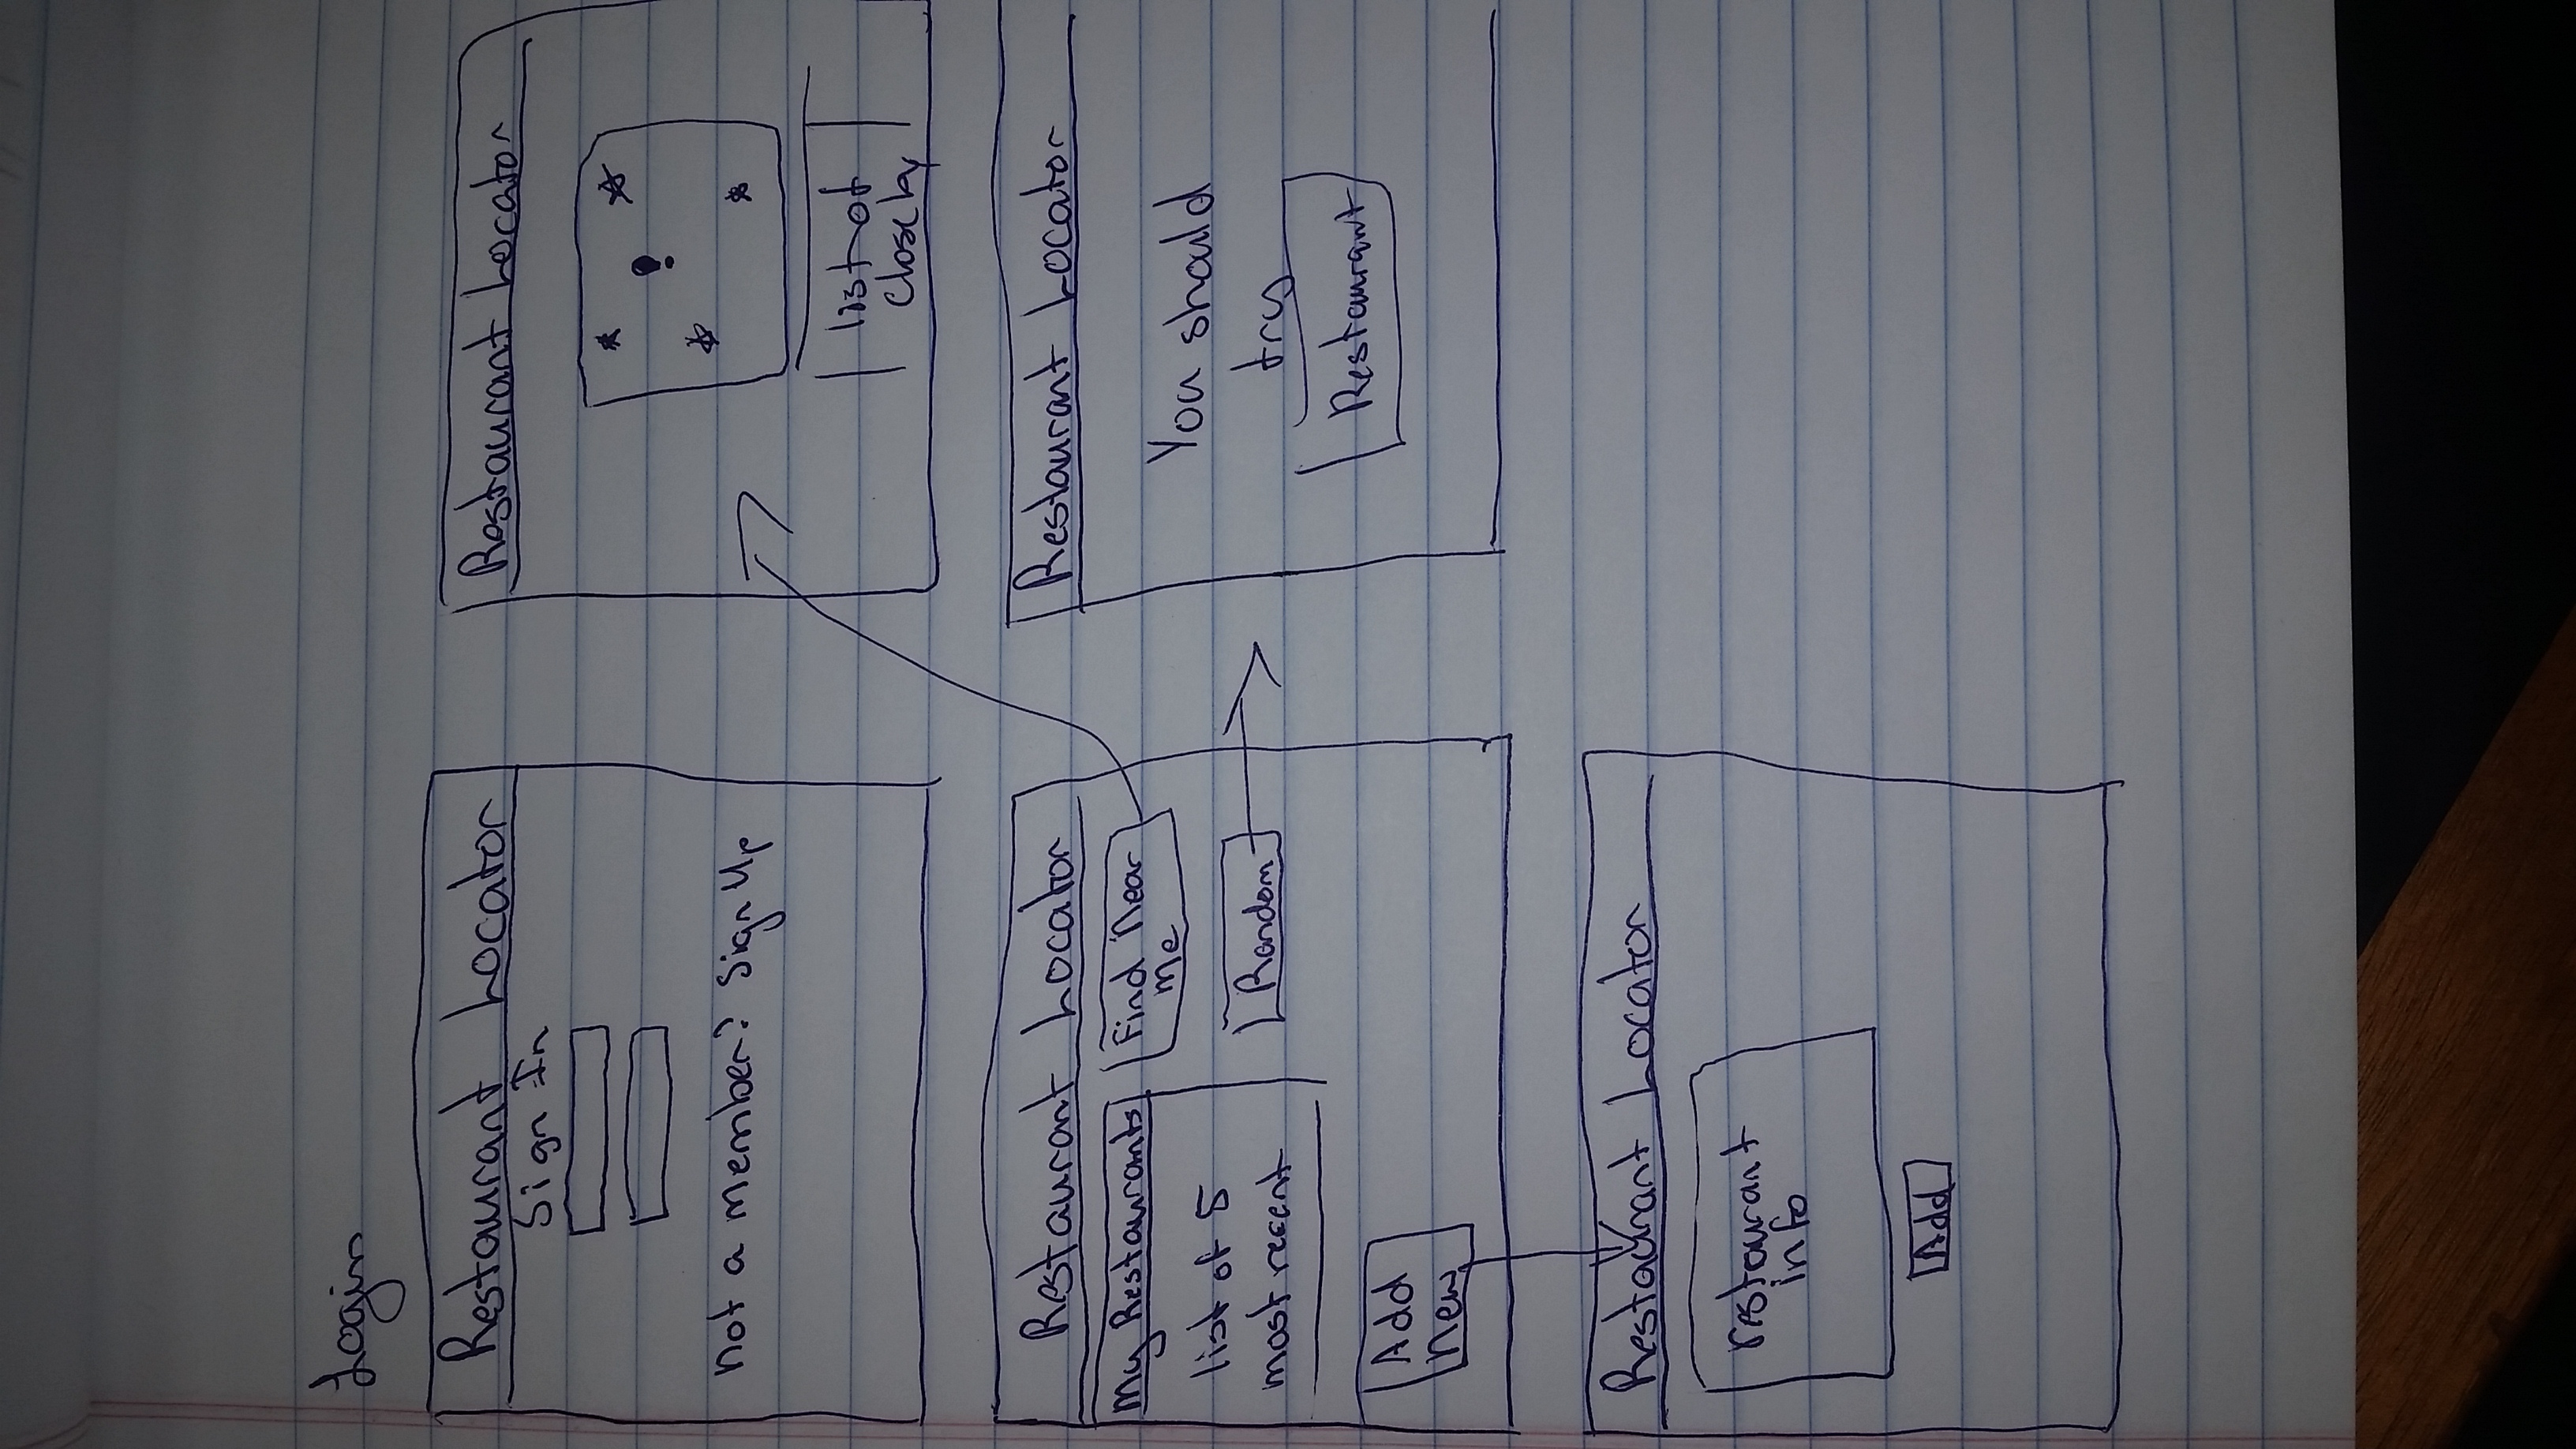 Login
Restaurant Locator
Sign In
not a member? Sign Up
Restaurant Locator
list of
close by
Restaurant Locator
My Restaurants
list of 5
most recent
Find Near
me
Random
Add
new
Restaurant Locator
You should
try
Restaurant
Restaurant Locator
restaurant
info
Add